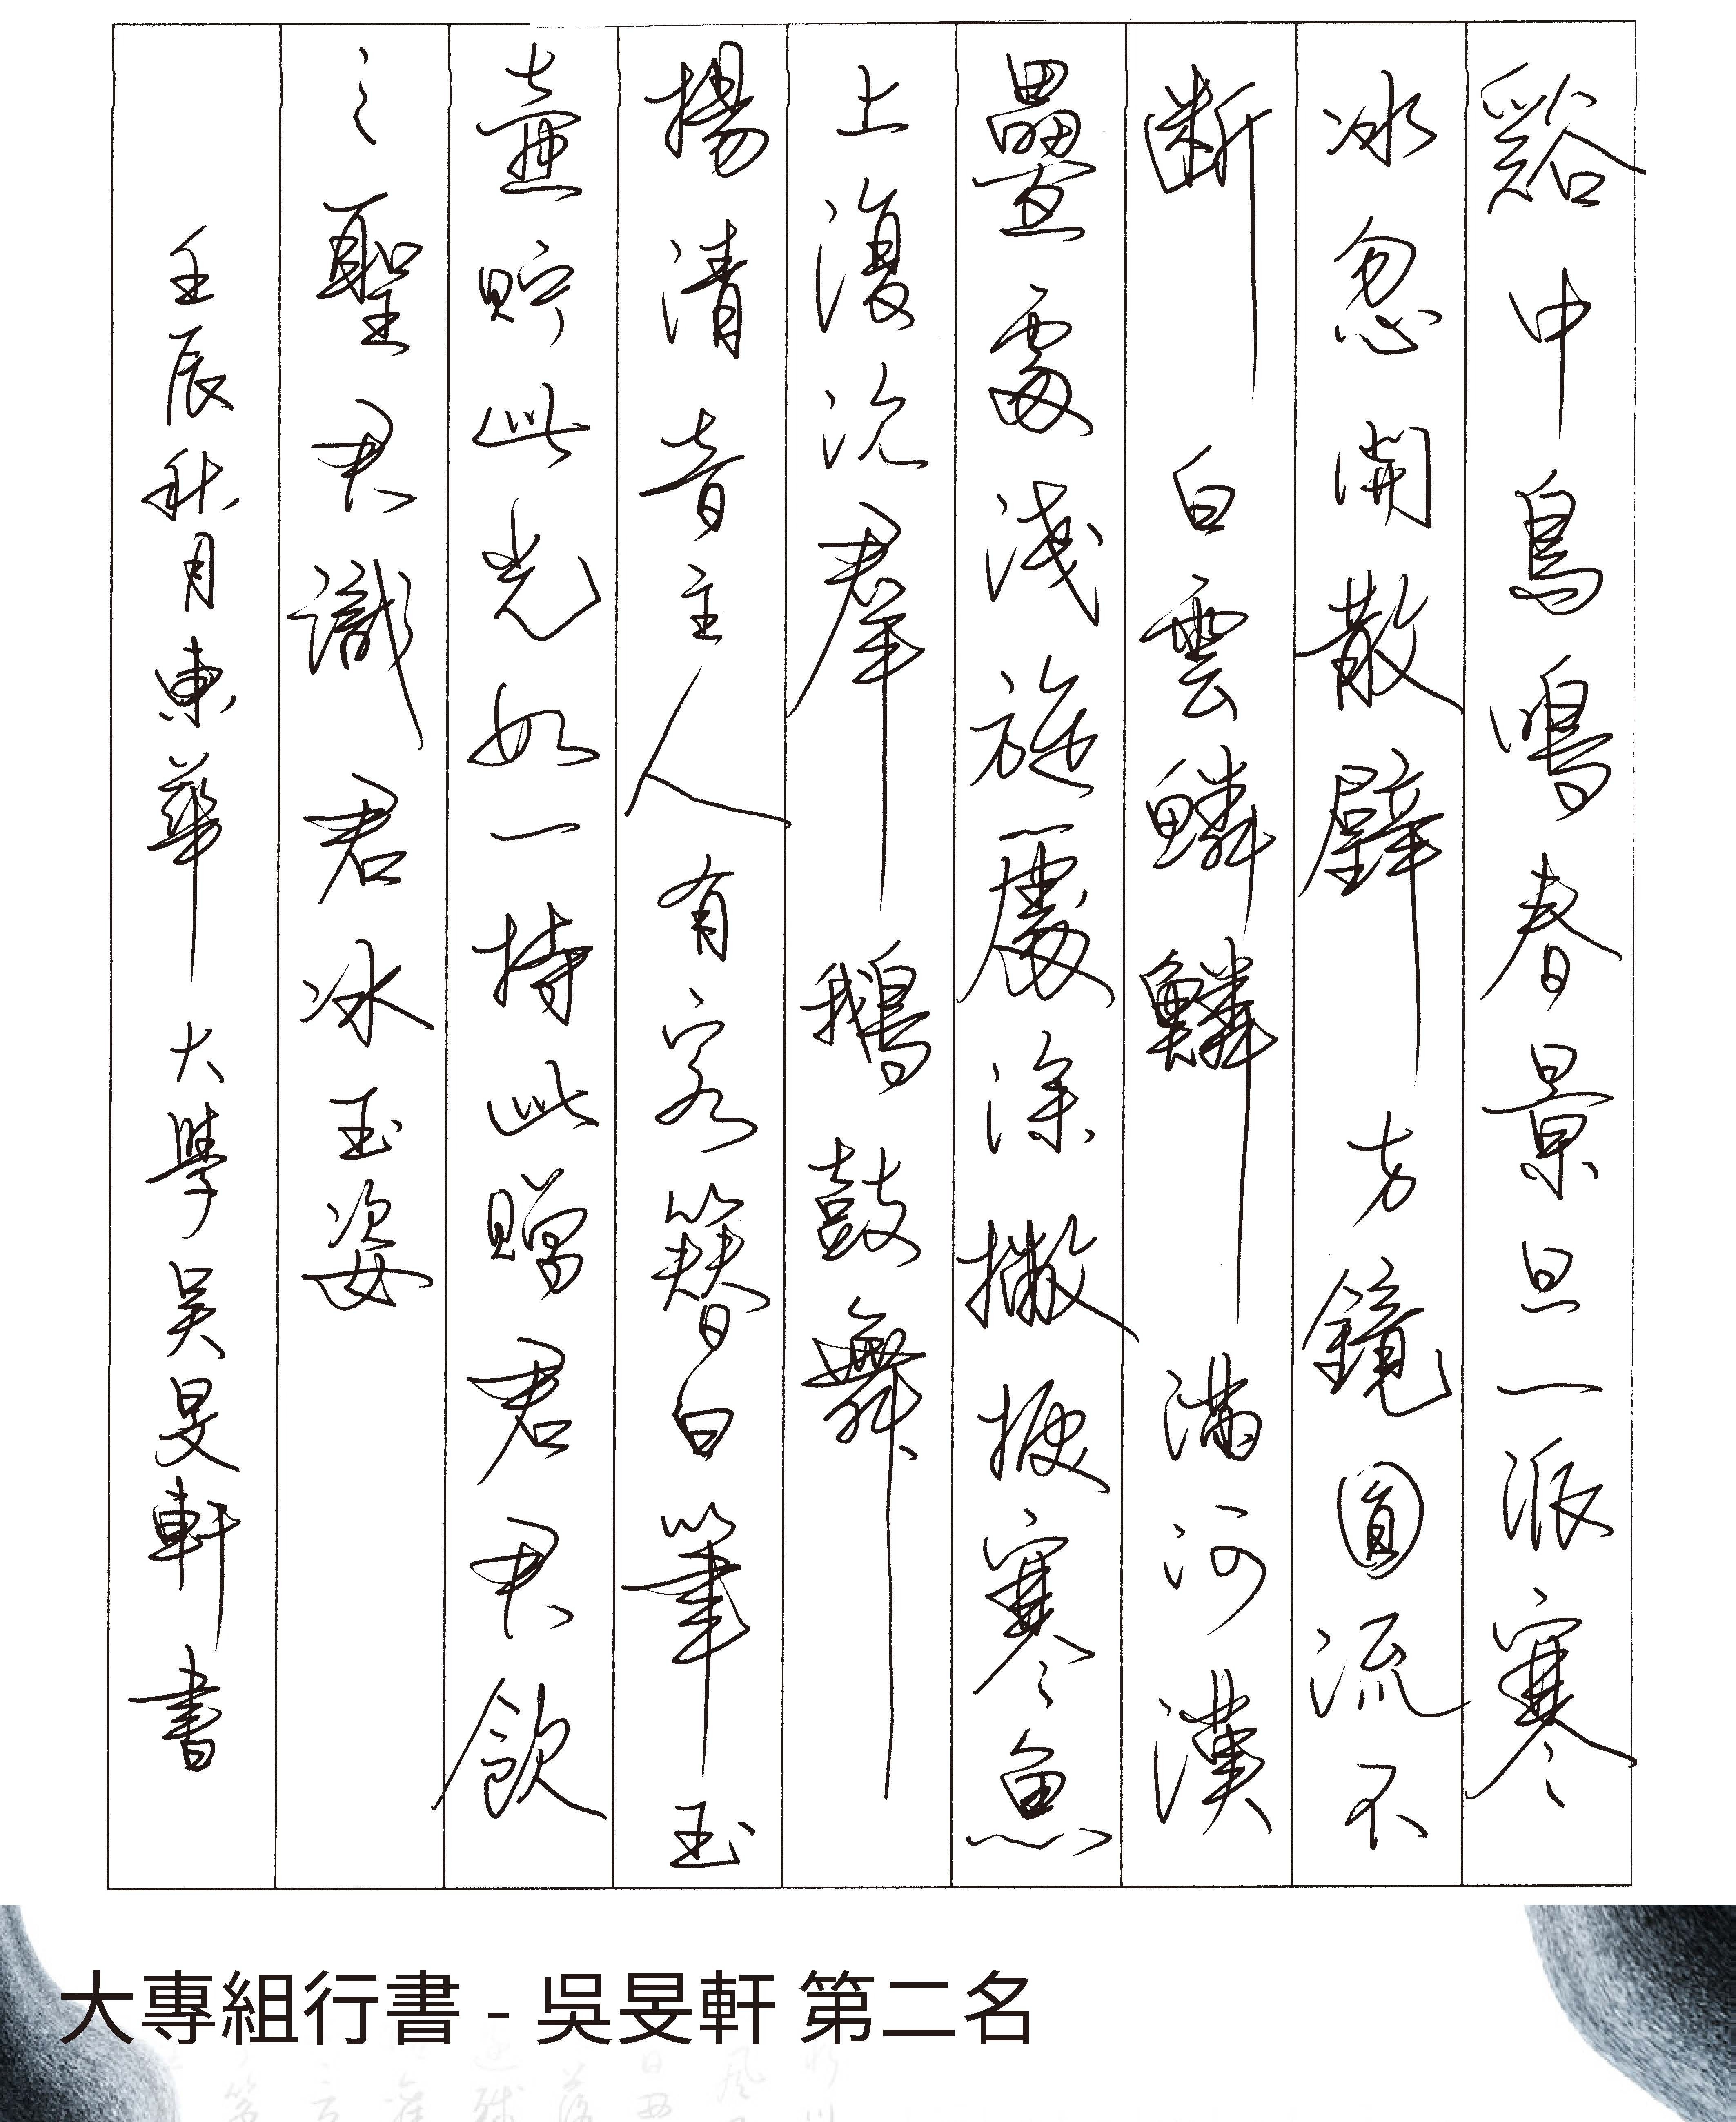 谿中鳥鳴春景旦一派寒
冰忽開散璧方鏡圓流不
斷白雲鱗鱗滿河漢
疊處淺旋處深撇捩寒魚
上復沉群鵝鼓舞
揚清音主人有客簪白筆玉
壺貯此光如一持此贈君君飲
之聖君識君冰玉姿
壬辰秋月東華大學吳旻軒書
大專組行書 - 吳旻軒 第二名